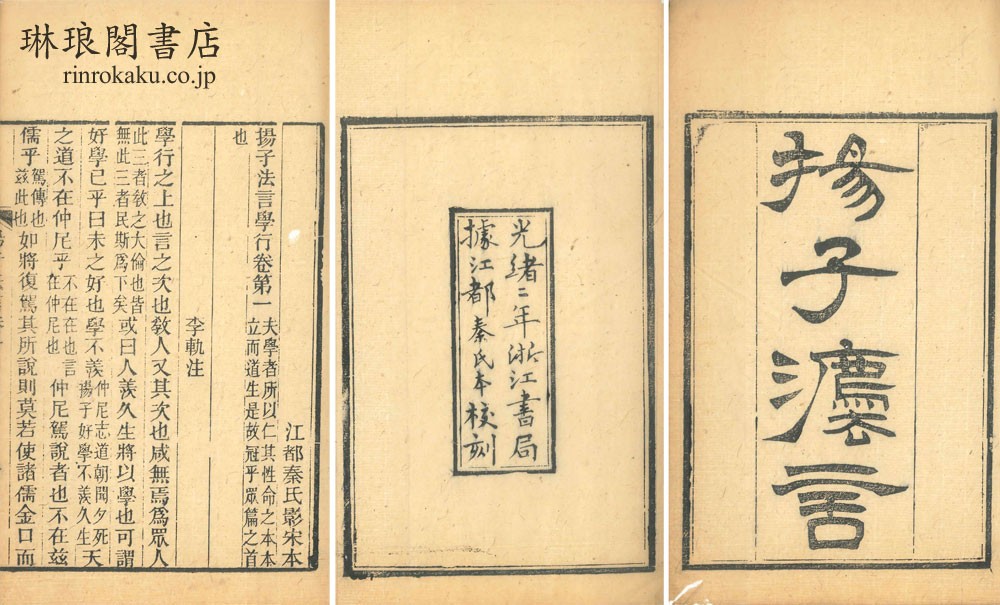 琳琅閣書店
rinrokaku.co.jp
揚子灋言
光緒二年浙江書局
據江都秦氏本校刻
江都秦氏影宋本
揚子法言學行卷第一 夫學者所以仁其性命之本本立而道生是故冠乎眾篇之首也
李軌注
學行之上也言之次也敎人又其次也咸無焉爲眾人
此三者敎之大倫也皆無此三者民斯爲下矣 或曰人羨久生將以學也可謂
好學已乎曰未之好也學不羨 仲尼志道朝聞夕死揚子好學不羨久生 天
之道不在仲尼乎 不在在也言在仲尼也 仲尼駕說者也不在茲
儒乎 駕傳也茲此也 如將復駕其所說則莫若使諸儒金口而